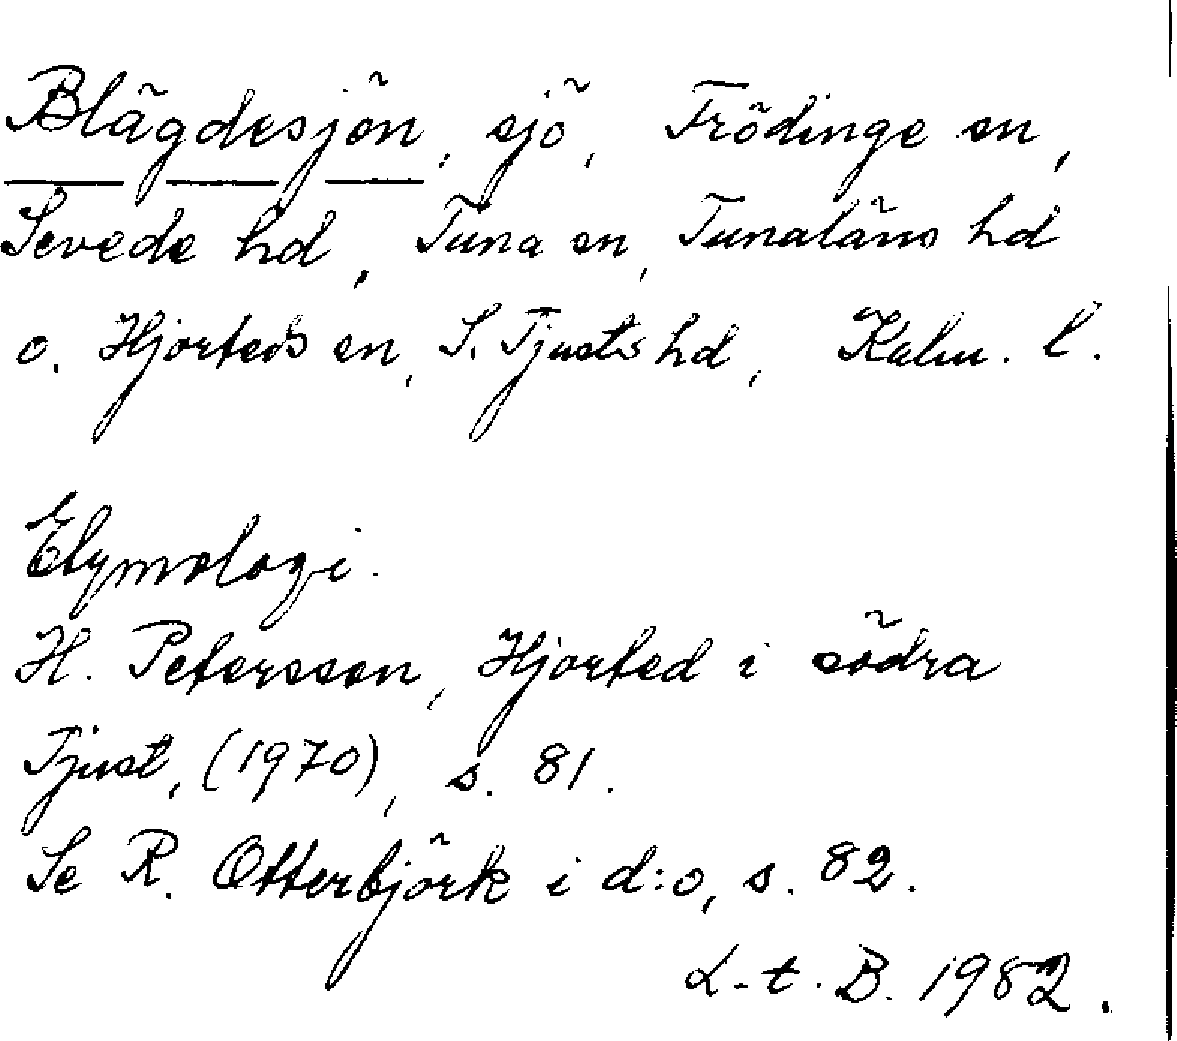 Blägdesjön, sjö, Frödinge sn,
Sevede hd, Tuna sn, Tunaläns hd
o. Hjorteds sn, S. Tjusts hd, Kalm. l.
Etymologi.
H. Petersson, Hjorted i södra
Tjust, (1970), s. 81.
Se R. Otterbjörk i d:o, s. 82.
L-t. B. 1982.